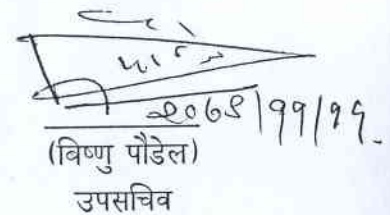 २०७९/११/१९
(विष्णु पौडेल)
उपसचिव